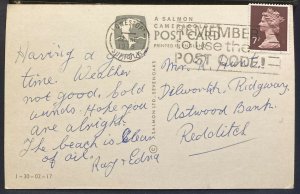 A SALMON
CAMERACOLOUR
POST CARD
PRINTED IN
REMEMBER
to use the
POST CODE!
7P
Having a good
time. Weather
not good, cold
winds. Hope you
are alright.
The beach is clean
of oil.
Ray & Edna
1-30-02-17
© SALMON SEVENOAKS
Mrs. K.
Dilworth, Ridgway,
Astwood Bank,
Redditch